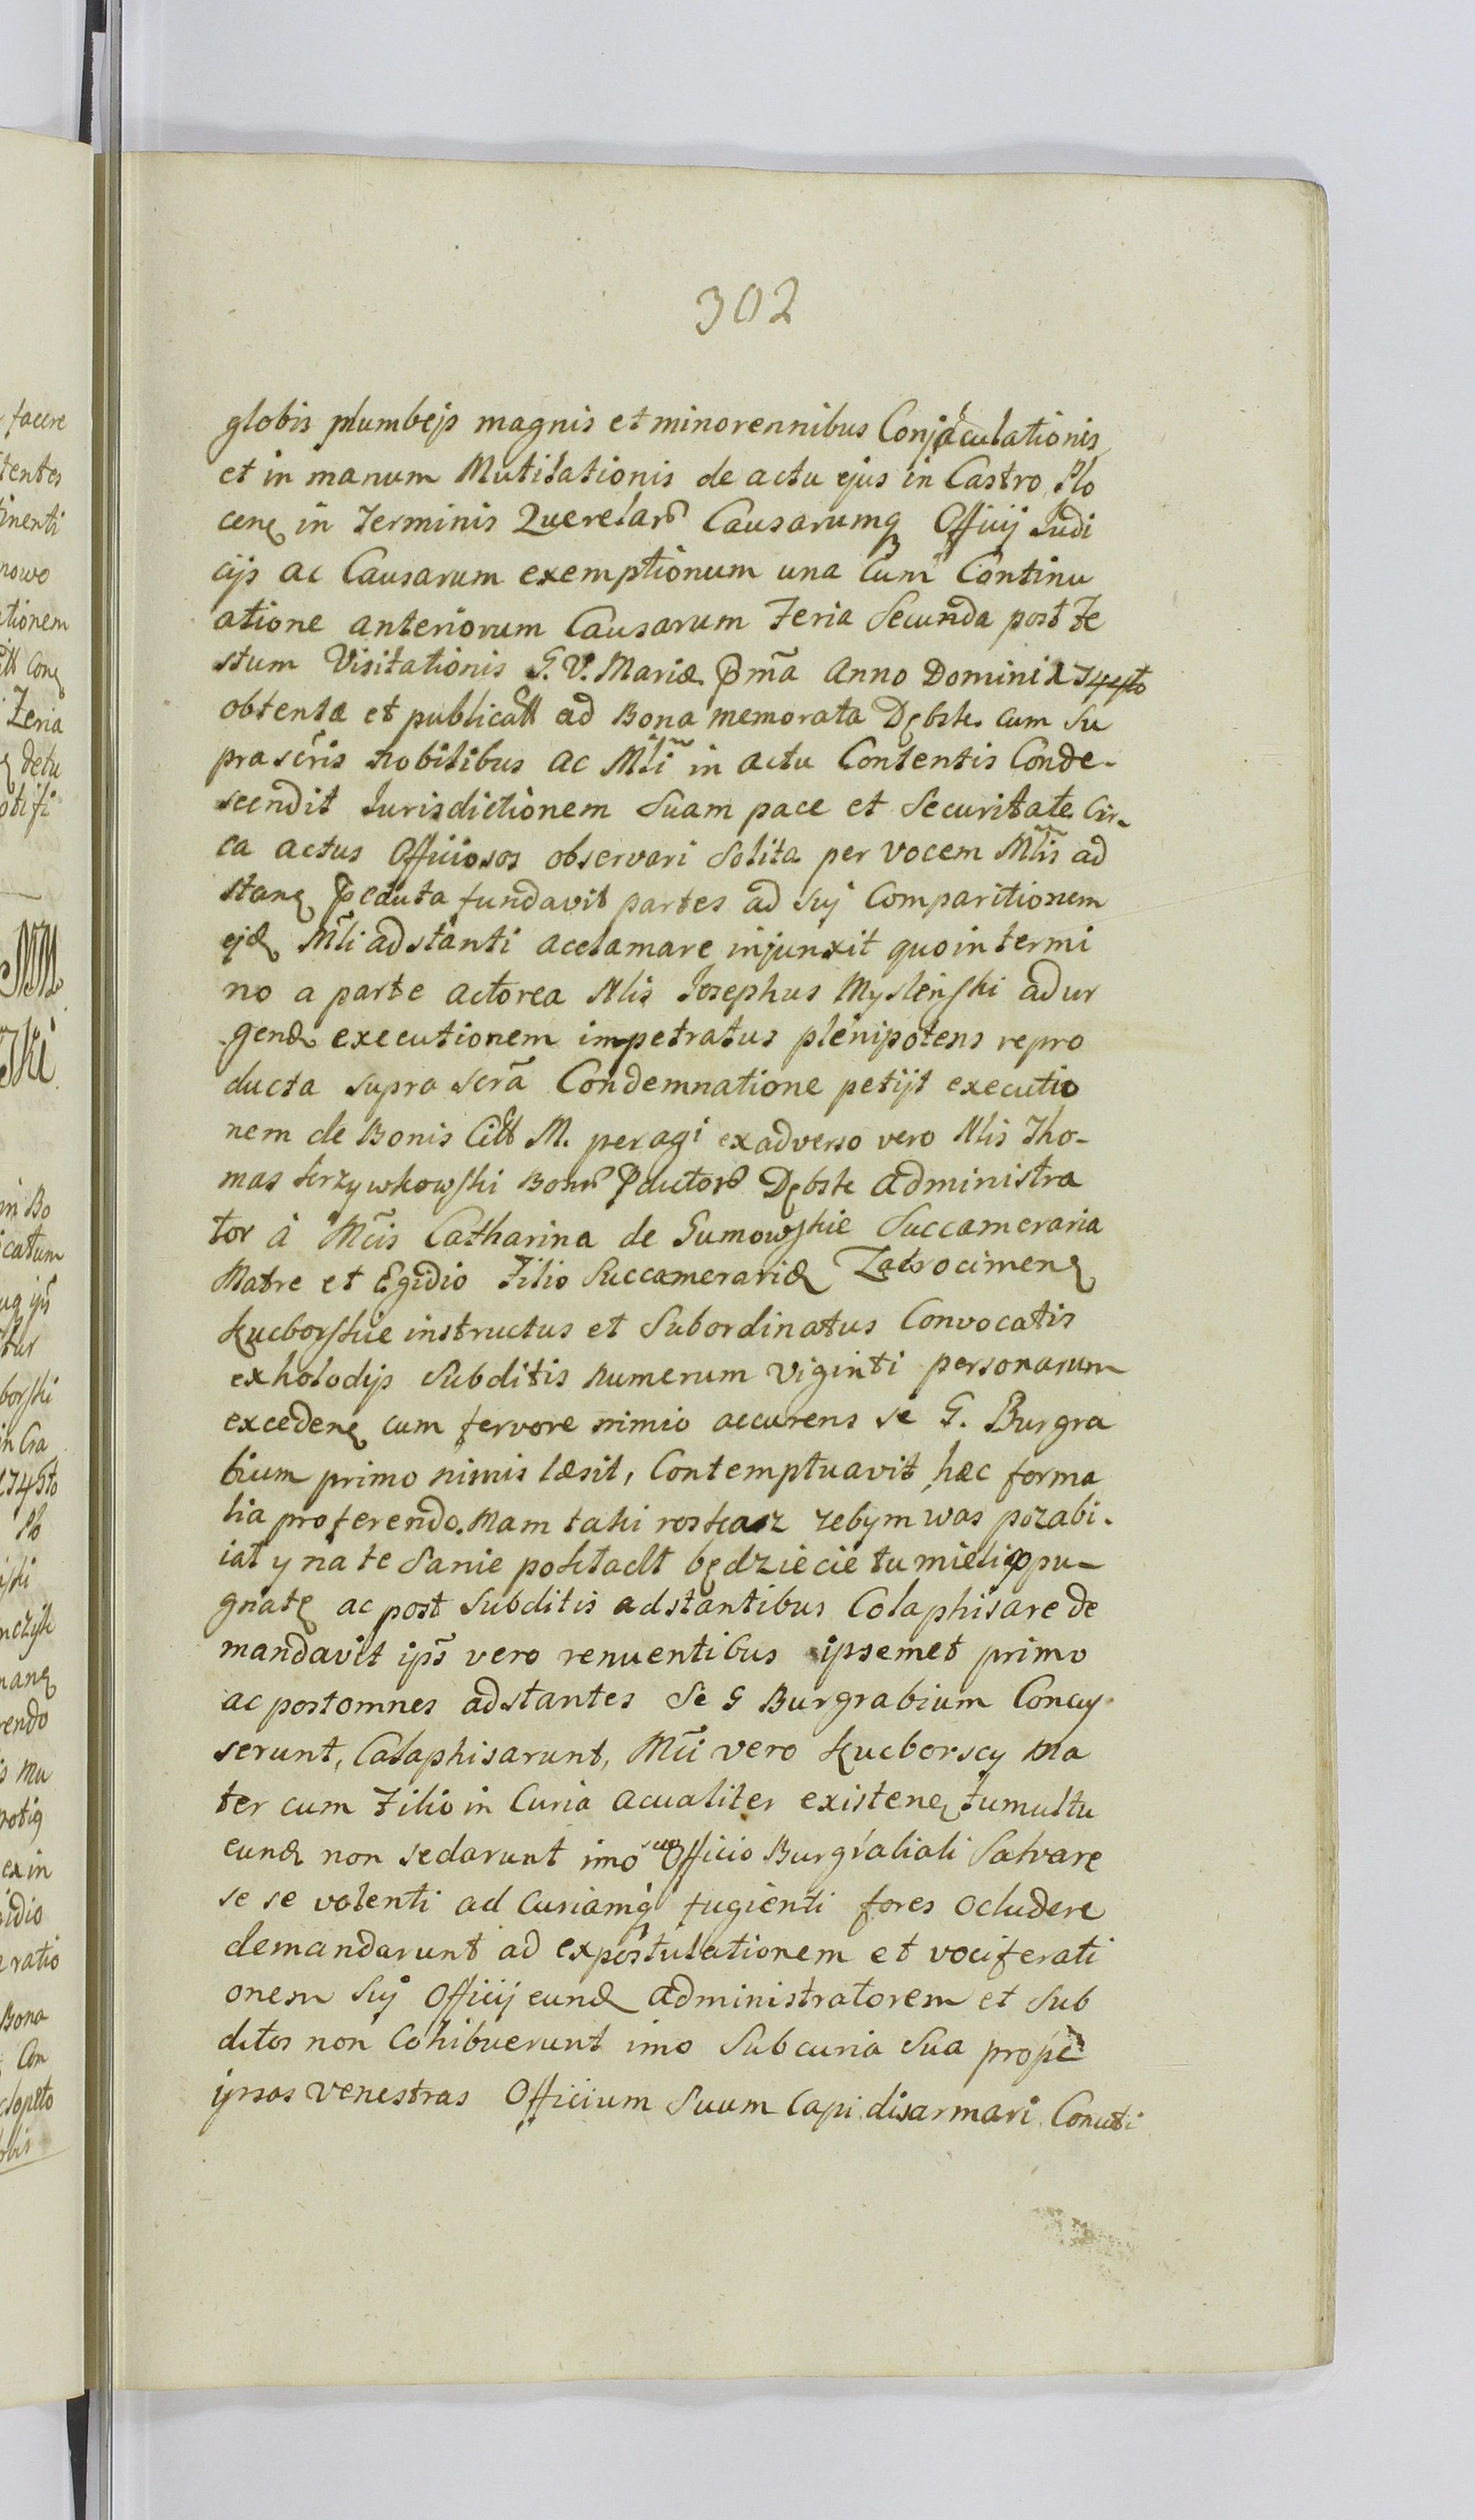 302
globis plumbejs magnis et minorennibus Conjaculationis
et in manum Mutilationis de actu ejus in Castro Plo
cenȩ in Terminis Querelarũ Causarumq Officij Judi
cijs ac Causarum exemptionum una cum Continu
atione anteriorum Causarum Feria Secunda post Fe
stum Visitationis G. V. Mariæ Pm̃a Anno Domini
obtentæ et publicatt ad Bona memorata Dębsk cum Su
prascr̃is Nobilibus ac Ml̃i in actu Contentis Conde-
scendit Jurisdictionem Suam pace et Securitate Cir-
ca actus Officiosos observari Solita per vocem Ml̃is ad
stanȩ peduta fundavit partes ad Suj Comparitionem
ejd Ml̃i adstanti acclamare injunxit quo in termi
no a parte actorea Nlis Josephus Mysleński ad ur
gend executionem impetratus plenipotens repro
ducta supra scrã Condemnatione petijt executio
nem de Bonis Citt M. peragi exadverso vero Nlis Tho-
mas Krzywkowski Bonũ Pdictorũ Dębsk Administra
tor à Mc̃is Catharina de Gumowskie Succameraria
Matre et Egidio Filio Succameraridæ Zakrocimenȩ
Kucborskie instructus et Subordinatus Convocatis
exholodijs Subditis numerum viginti personarum
excedenȩ cum fervore nimio accurens se G. Burgra
bium primo nimis læsit, Contemptuavit hæc forma
lia proferendo. Mam taki roskasz zebym was pozabi-
iał y na te Sanie pokładł będziecie tu mieli oppu-
gnatȩ ac post Subditis adstantibus Colaphisare de
mandavit ips̃ vero renuentibus ipsemet primo
ac post omnes adstantes Se G Burgrabium Concuj
serunt, Calaphisarunt, Mc̃i vero Kucborscy Ma
ter cum Filio in Curia acualiter existenȩ tumultu
eund non sedarunt imo suo Officio Burgrabiali Salvare
se se volenti ad Curiamq fugienti fores ocludere
demandarunt ad expostulationem et vociferati
onem Suj Officij eund Administratorem et Sub
ditos non Cohibuerunt imo Sub curia Sua prope
ipsas Venestras Officium Suum Capi disarmari Conuti